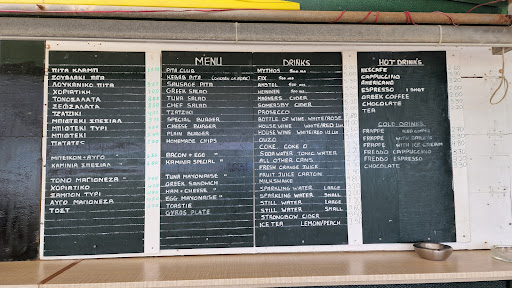 ΠΙΤΑ ΚΛΑΜΠ
ΣΟΥΒΛΑΚΙ ΠΙΤΑ
ΛΟΥΚΑΝΙΚΟ ΠΙΤΑ
ΧΩΡΙΑΤΙΚΗ
ΤΟΝΟΣΑΛΑΤΑ
ΣΕΦΣΑΛΑΤΑ
ΤΖΑΤΖΙΚΙ
ΜΠΙΦΤΕΚΙ ΣΠΕΣΙΑΛ
ΜΠΙΦΤΕΚΙ ΤΥΡΙ
ΜΠΙΦΤΕΚΙ
ΠΑΤΑΤΕΣ
ΜΠΕΙΚΟΝ + ΑΥΓΟ
ΚΑΜΙΝΙΑ ΣΠΕΣΙΑΛ
ΤΟΝΟ ΜΑΓΙΟΝΕΖΑ
ΧΩΡΙΑΤΙΚΟ
ΖΑΜΠΟΝ ΤΥΡΙ
ΑΥΓΟ ΜΑΓΙΟΝΕΖΑ
ΤΟΣΤ
MENU
PITA CLUB
KEBAB PITA
SAUSAGE PITA
GREEK SALAD
TUNA SALAD
CHEF SALAD
TZATZIKI
SPECIAL BURGER
CHEESE BURGER
PLAIN BURGER
HOMEMADE CHIPS
BACON + EGG
KAMINIA SPECIAL
TUNA MAYONAISE
GREEK SANDWICH
HAM + CHEESE
EGG MAYONAISE
TOASTIE
GYROS PLATE
DRINKS
MYTHOS 500 ML
FIX 500 ML
AMSTEL 500 ML
HEINIKEN 500 ML
MAGNERS CIDER
SOMERSBY CIDER
PROSECCO
BOTTLE OF WINE WHITE/ROSE
HOUSE WINE WHITE/RED
HOUSE WINE WHITE/RED
OUZO
COKE, COKE 0
SODAWATER TONIC WATER
ALL OTHER CANS
FRESH ORANGE JUICE
FRUIT JUICE CARTON
MILKSHAKE
SPARKLING WATER LARGE
SPARKLING WATER SMALL
STILL WATER LARGE
STILL WATER SMALL
STRONGBOW CIDER
ICE TEA LEMON/PEACH
HOT DRINKS
NESCAFE
CAPPUCCINO
AMERICANO
ESPRESSO 1 SHOT
GREEK COFFEE
CHOCOLATE
TEA
COLD DRINKS
FRAPPE
FRAPPE WITH BAILEYS
FRAPPE WITH ICE CREAM
FREDDO CAPPUCCINO
FREDDO ESPRESSO
CHOCOLATE